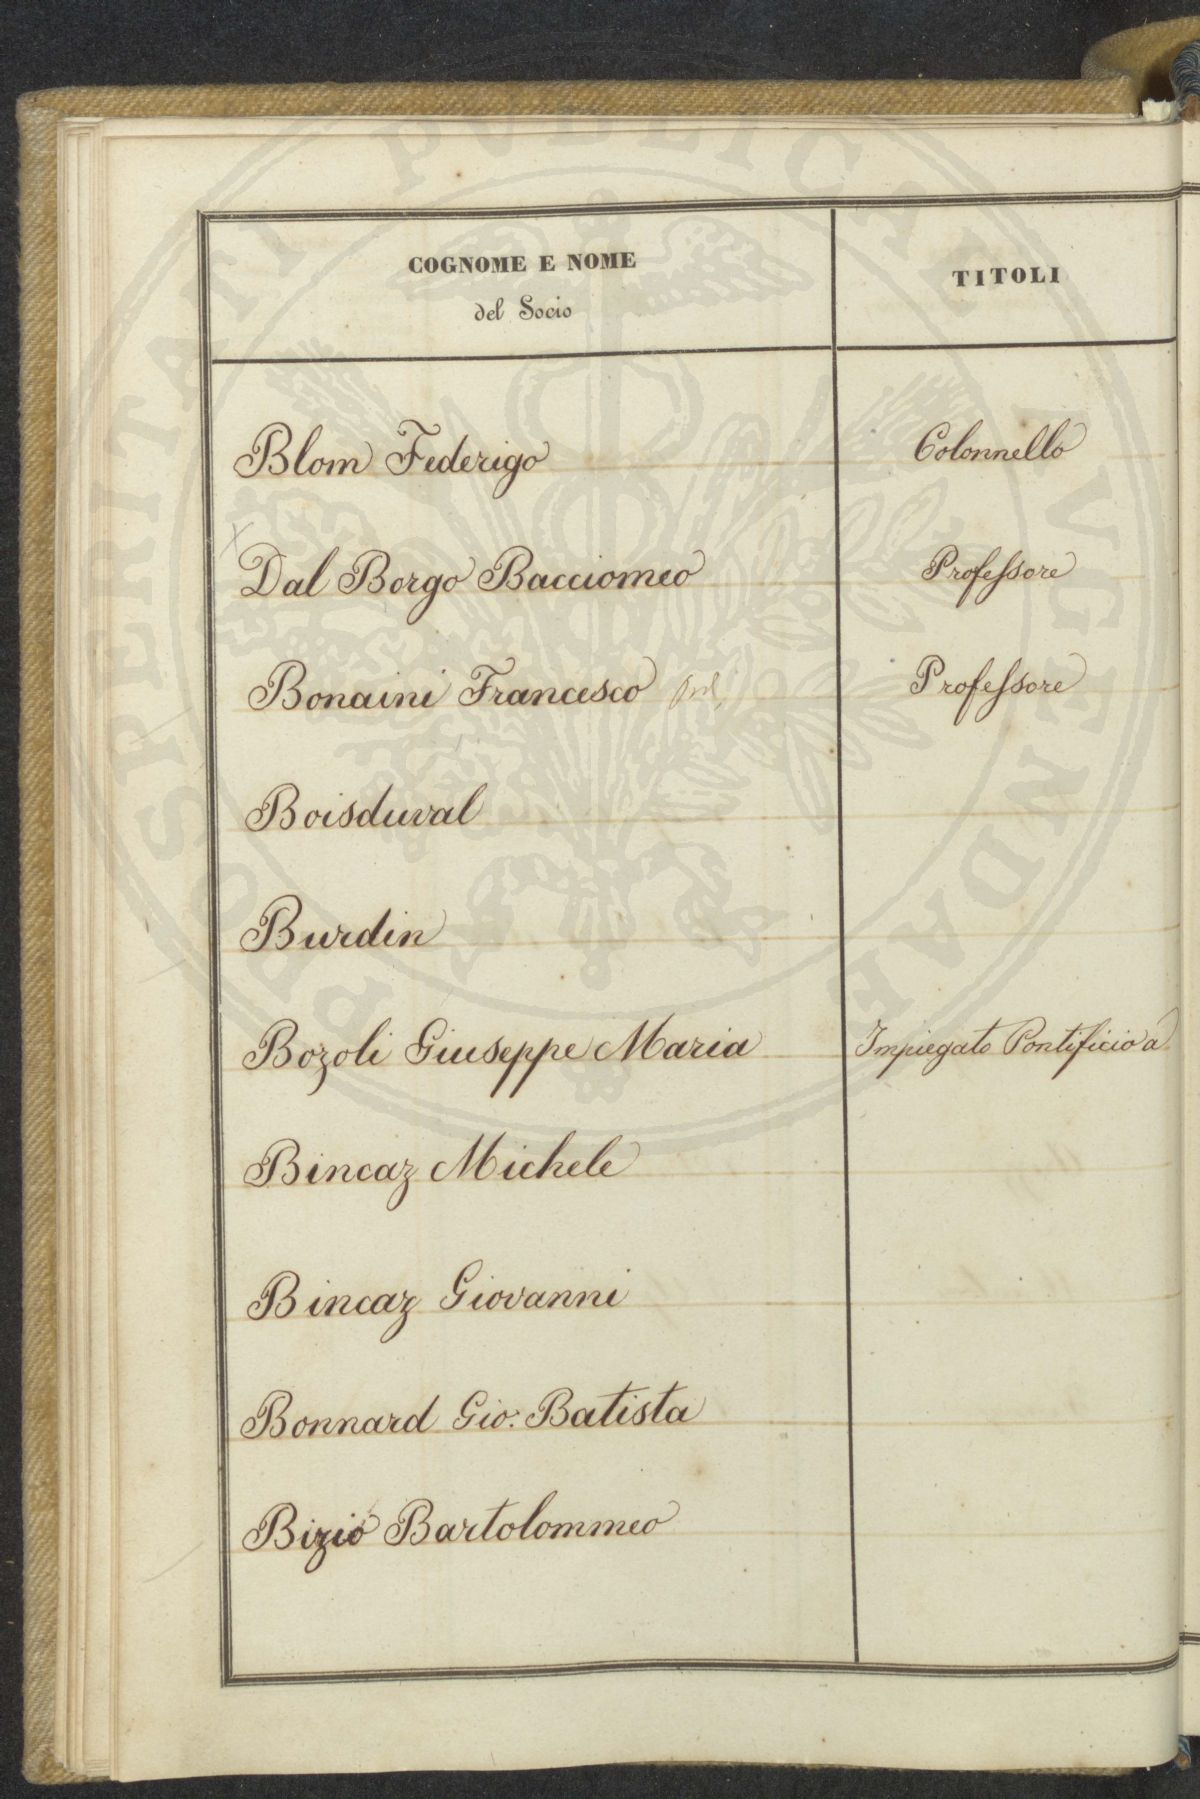 PROSPERITATI PVBLICAE AVGENDAE
COGNOME E NOME TITOLI
del Socio
Blom Federigo Colonnello
Dal Borgo Bacciomeo Professore
Bonaini Francesco Professore
Boisduval
Burdin
Bozoli Giuseppe Maria Impiegato Pontificio a
Bincaz Michele
Bincaz Giovanni
Bonnard Gio. Batista
Bizio Bartolommeo